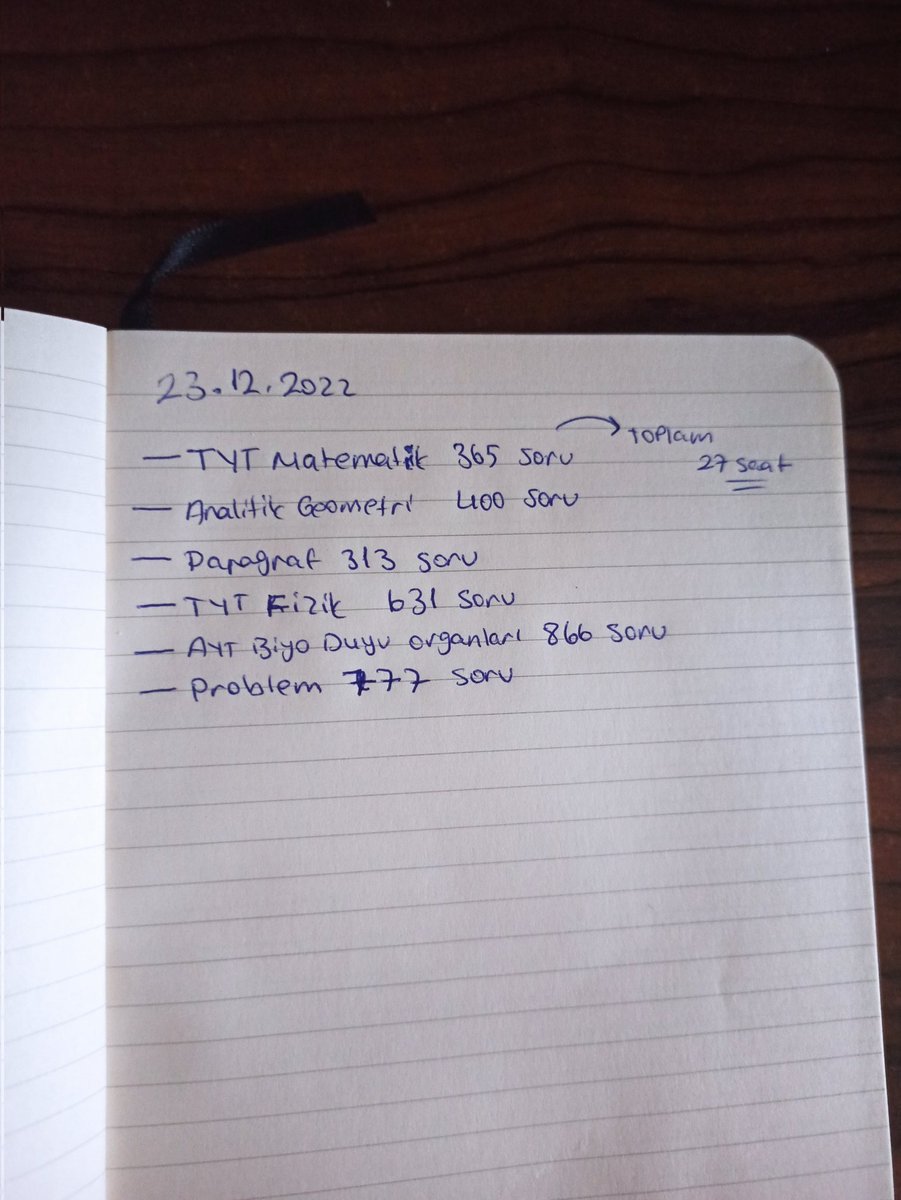 23.12.2022
— TYT Matematik 365 soru → TOPlam
27 seat
— Analitik Geometri 400 soru
— Paragraf 313 soru
— TYT Fizik 631 soru
— AYT Biyo Duyu organları 866 soru
— Problem 777 soru